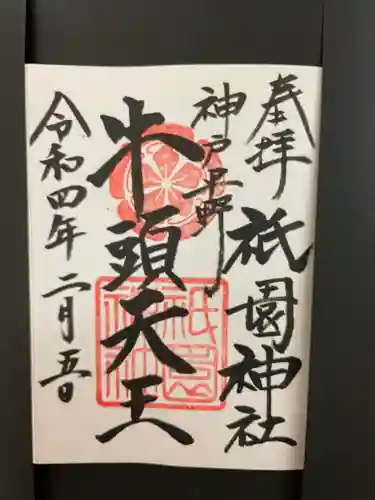 奉拝
祇園神社
神戸平野
牛頭天王
令和四年二月五日